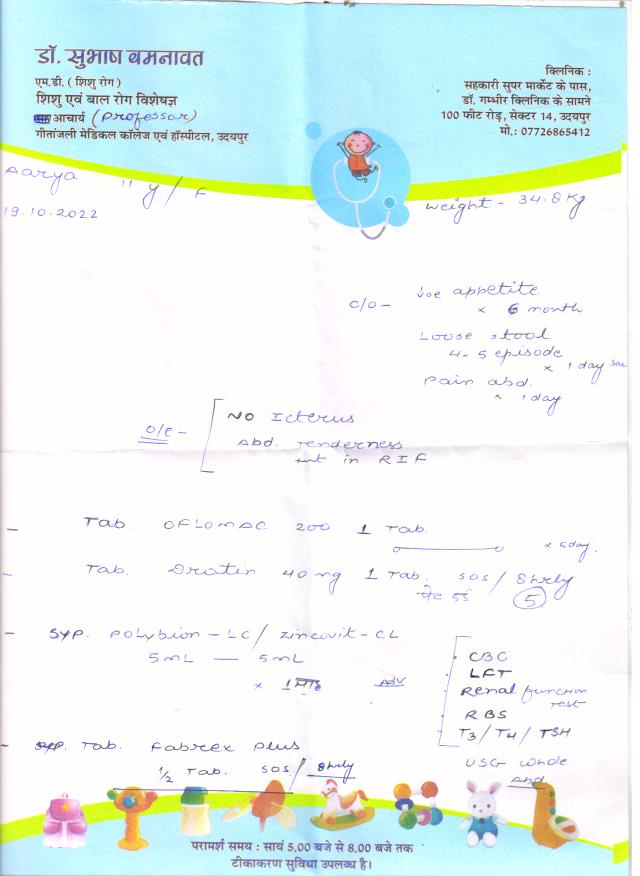 डॉ. सुभाष बमनावत
एम.डी. ( शिशु रोग )
शिशु एवं बाल रोग विशेषज्ञ
आचार्य (Professor)
गीतांजली मेडिकल कॉलेज एवं हॉस्पीटल, उदयपुर
क्लिनिक :
सहकारी सुपर मार्केट के पास,
डॉ. गम्भीर क्लिनिक के सामने
100 फीट रोड़, सेक्टर 14, उदयपुर
मो.: 07726865412
Aarya 11 y / F
19.10.2022
Weight - 34.8 Kg
C/O - ↓se appetite
× 6 month
Loose stool
4-5 episode
× 1 day
Pain abd.
× 1 day
O/E -
NO Icterus
Abd. Tenderness
+nt in RIF
- Tab. OFLOMAC 200 1 Tab.
× 5 day.
- Tab. Drotin 40 mg 1 Tab. SOS / 8hrly
पेट दर्द (5)
- Syp. POLYBION - LC / Zincovit - CL
5 mL — 5 mL
× 1 माह
Adv
CBC
LFT
Renal function
Test
RBS
T3 / T4 / TSH
USG whole
Abd
- Tab. Fabrex Plus
1/2 Tab. SOS / 8hrly
परामर्श समय : सायं 5.00 बजे से 8.00 बजे तक
टीकाकरण सुविधा उपलब्ध है।